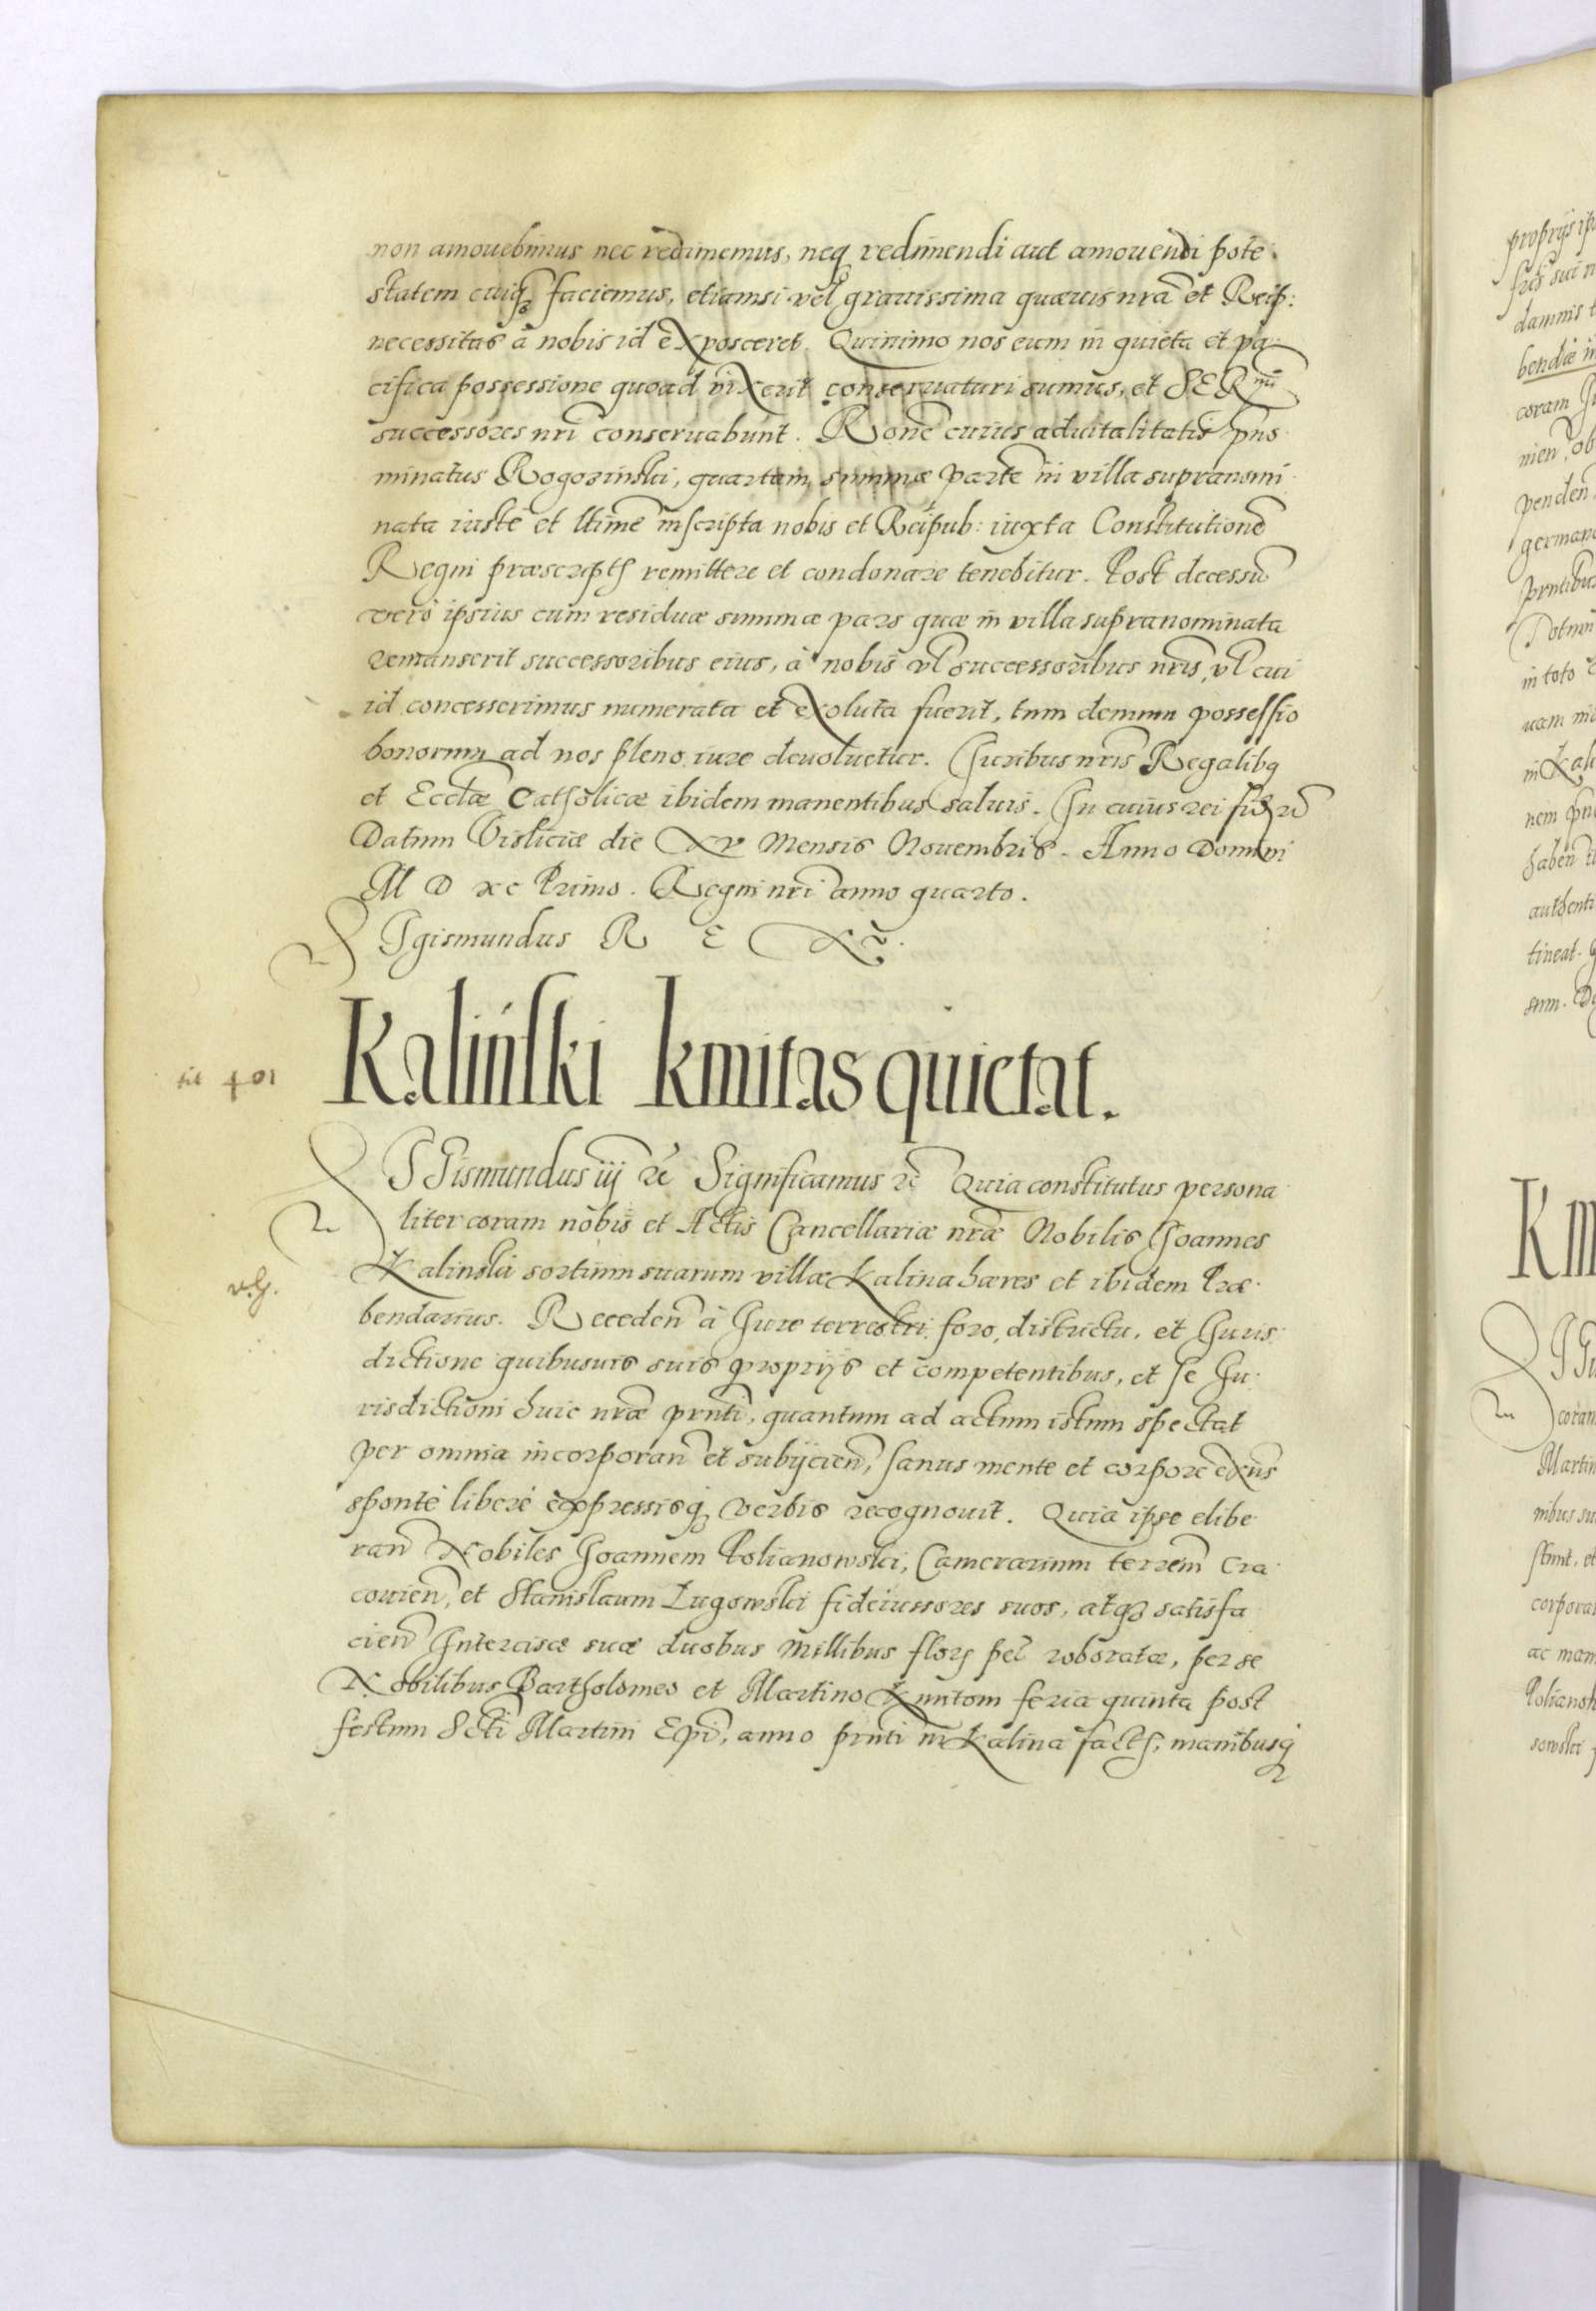 non amouebimus nec redimemus, neq redimendi aut amouendi pote.
statem cuiq faciemus, etiamsi vel grauissima quæuis nrã et Reip:
necessitas à nobis id exposceret. Quinimo nos eum in quieta et pa
cifica possessione quoad vixerit conseruaturi sumus, et SERmi
successores nri conseruabunt. Rone cuius aduitalitatis pns
minatus Rogozinski, quartam summæ parte in villa supranomi
nata iuste et ltime inscripta nobis et Reipub: iuxta Constitutione
Regni præscripth remittere et condonare tenebitur. Post decessũ
vero ipsius cum residuæ summæ pars quæ in villa supranominata
remanserit successoribus eius, à nobis vl successoribus nris, vl cui
id concesserimus numerata et exoluta fuerit, tum demum possessio
bonorum ad nos pleno iure deuoluetur. Juribus nris Regalibq
et Ecclæ Catholicæ ibidem manentibus saluis. In cuius rei fid rc
Datum Visliciæ die XV Mensis Nouembris. Anno Domini
M D xc Primo. Regni nri anno quarto.
SIgismundus R
Kaliński kmitas quietat.
SIGismundus iij rc Significamus rc Quia constitutus persona
liter coram nobis et Actis Cancellariæ nræ Nobilis Joannes
Kalinski sortium suarum villæ Kalina hæres et ibidem Præ.
bendarius. Receden à Jure terrestri foro, districtu, et Juris.
dictione quibusuis suis proprijs et competentibus, et se Ju.
risdictioni huic nræ prnti, quantum ad actum istum spectat
per omnia incorporan et subijcien, sanus mente et corpore exns
sponte libere expressisq verbis recognouit. Quia ipse elibe.
ran Nobiles Joannem Polianowski, Camerarium terrem Cra.
couien, et Stanislaum Lugowski fideiussores suos, atq satisfa
cien Intercisæ suæ duobus Millibus flor pel roboratæ, per se
Nobilibus Bartholomeo et Martino Kmitom feria quinta post
festum Scti Martini Epi, anno prnti in Kalina facth, manibusq